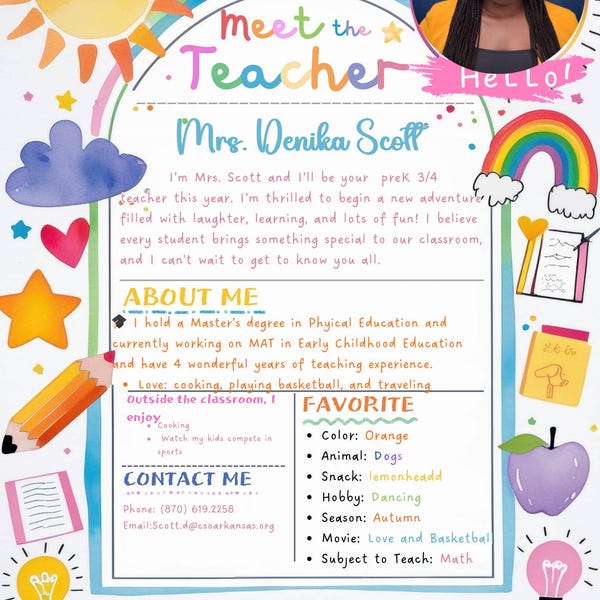 Meet the
Teacher
HeLLo!
Mrs. Denika Scott
I'm Mrs. Scott and I'll be your preK 3/4
teacher this year. I'm thrilled to begin a new adventure
filled with laughter, learning, and lots of fun! I believe
every student brings something special to our classroom,
and I can't wait to get to know you all.
ABOUT ME
I hold a Master's degree in Phyical Education and
currently working on MAT in Early Childhood Education
and have 4 wonderful years of teaching experience.
• Love: cooking, playing basketball, and traveling
Outside the classroom, I
enjoy
• Cooking
• Watch my kids compete in
sports
CONTACT ME
Phone: (870) 619.2258
Email:Scott.d@csoarkansas.org
FAVORITE
• Color: Orange
• Animal: Dogs
• Snack: lemonheadd
• Hobby: Dancing
• Season: Autumn
• Movie: Love and Basketball
• Subject to Teach: Math